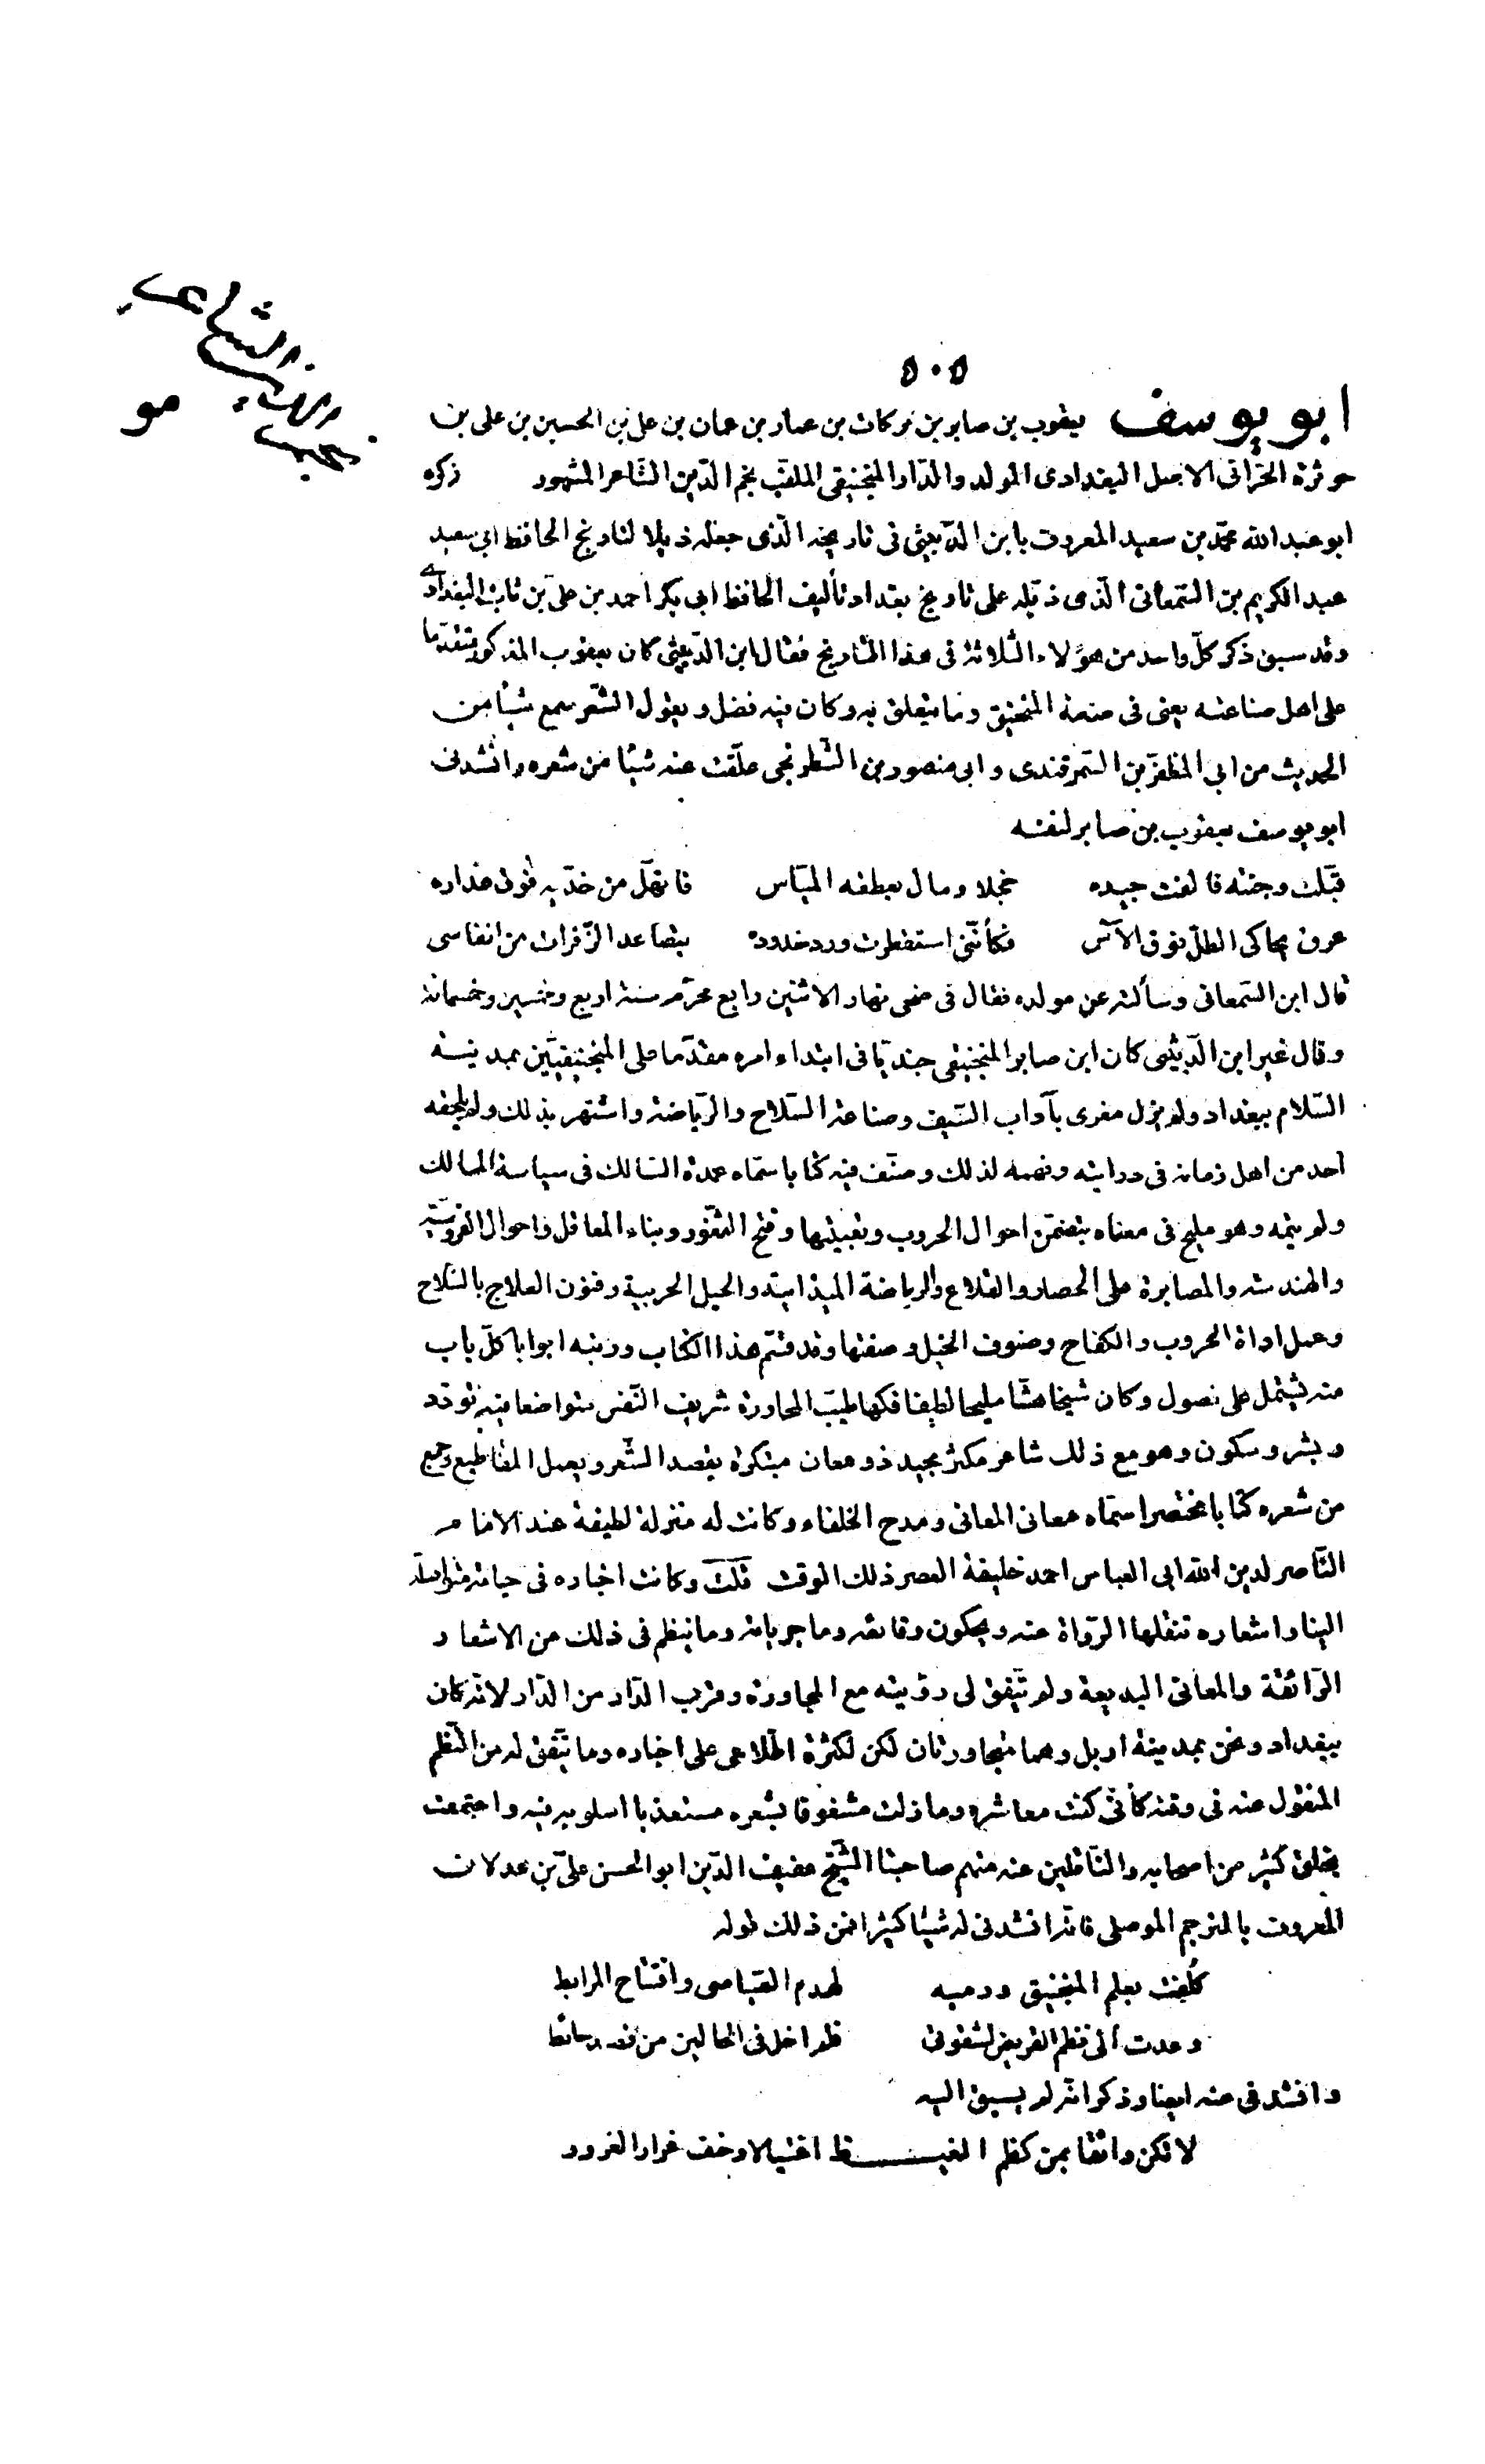 ٥٠٥
ابو يوسف يعقوب بن صابر بن بركات بن عمار بن عمان بن على بن الحسين بن على بن
حوثرة الحرّانى الاصل البغدادى المولد والدّار المنجنيقى الملقّب بنجم الدّين الشّاعر المشهور ذكره
ابو عبد الله محمّد بن سعيد المعروف بابن الدّبيثى فى تاريخه الّذى جعله ذيلا لتاريخ الحافظ ابى سعيد
عبد الكريم بن السّمعانى الّذى ذيّله على تاريخ بغداد تأليف الحافظ ابى بكر احمد بن على بن ثابت البغدادى
وقد سبق ذكر كلّ واحد من هؤلاء الثلاثة فى هذا التّاريخ فقال ابن الدّبيثى كان يعقوب المذكور متقدّما
على اهل صناعته يعنى فى صنعة المنجنيق وما يتعلق به وكان فيه فضل ويقول الشّعر سمع شيئا من
الحديث من ابى المظفّر بن السّمرقندى وابى منصور بن الشّطرنجى علّقت عنه شيئا من شعره وانشدنى
ابو يوسف يعقوب بن صابر لنفسه
قبّلت وجنته فالفت جيده خجلا ومال بعطفه الميّاس فانهلّ من خدّيه فوق عذاره
عرق يحاكى الطلّ فوق الآس فكأنّنى استقطرت ورد خدوده بتصاعد الزّفرات من انفاسى
قال ابن السّمعانى وسألته عن مولده فقال فى ضحى نهار الاثنين رابع محرّم سنة اربع وخمسين وخمسمائة
وقال غير ابن الدّبيثى كان ابن صابر المنجنيقى جنديّا فى ابتداء امره مقدّما على المنجنيقيّين بمدينة
السّلام ببغداد ولم يزل مغرى بآداب السّيف وصناعة السّلاح والرّياضة واشتهر بذلك ولم يلحقه
احد من اهل زمانه فى درايته وفهمه لذلك وصنّف فيه كتابا سمّاه عمدة السّالك فى سياسة الممالك
ولم يتمه وهو مليح فى معناه يتضمّن احوال الحروب وتعبيتها وفتح الثّغور وبناء المعاقل واحوال الفروسيّة
والهندسة والمصابرة على الحصار والقلاع والرياضة الميدانية والحيل الحربية وفنون العلاج بالسّلاح
وعمل اداة الحروب والكفاح وصنوف الخيل وصفتها وقد قسّم هذا الكتاب ورتبه ابوابا كلّ باب
منه يشتمل على فصول وكان شيخا هشّا مليحا لطيفا فكها طيّب المحاورة شريف النّفس متواضعا فيه تودّد
وبشر وسكون وهو مع ذلك شاعر مكثر مجيد ذو معان مبتكرة يقصد الشّعر ويعمل المقاطيع وجمع
من شعره كتابا مختصرا سمّاه معانى المعانى ومدح الخلفاء وكانت له منزلة لطيفة عند الامام
النّاصر لدين الله ابى العباس احمد خليفة العصر ذلك الوقت قلت وكانت اخباره فى حياته متواصلة
الينا واشعاره تنقلها الرّواة عنه ويحكون وقائعه وماجرياته وما ينظم فى ذلك من الاشعار
الرّائقة والمعانى البديعة ولم يتّفق لى رؤيته مع المجاورة وقرب الدّار من الدّار لانّه كان
ببغداد ونحن بمدينة اربل وهما متجاورتان لكن لكثرة اطّلاعى على اخباره وما يتّفق له من النّظم
المنقول عنه فى وقته كأنّى كنت معاشره وما زلت مشغوفا بشعره مستعذبا اسلوبه فيه واجتمعت
بخلق كثير من اصحابه والنّاقلين عنه منهم صاحبنا الشّيخ عفيف الدّين ابو الحسن علىّ بن عدلان
المعروف بالمترجم الموصلى فانّه انشدنى له شيئا كثيرا فمن ذلك قوله
كلفت بعلم المنجنيق ورميه لهدم الصّياصى وافتتاح المرابط
وعدت الى نظم القريض لشقوتى فلم اخل فى الحالين من قصد حائط
وانشدنى عنه ايضا وذكر انّه لم يسبق اليه
لا تكن واثقا بمن كظم الغيـــظ اغتيالا وخف غرار الغرور
نجيب
الدين
الشاعر
مو